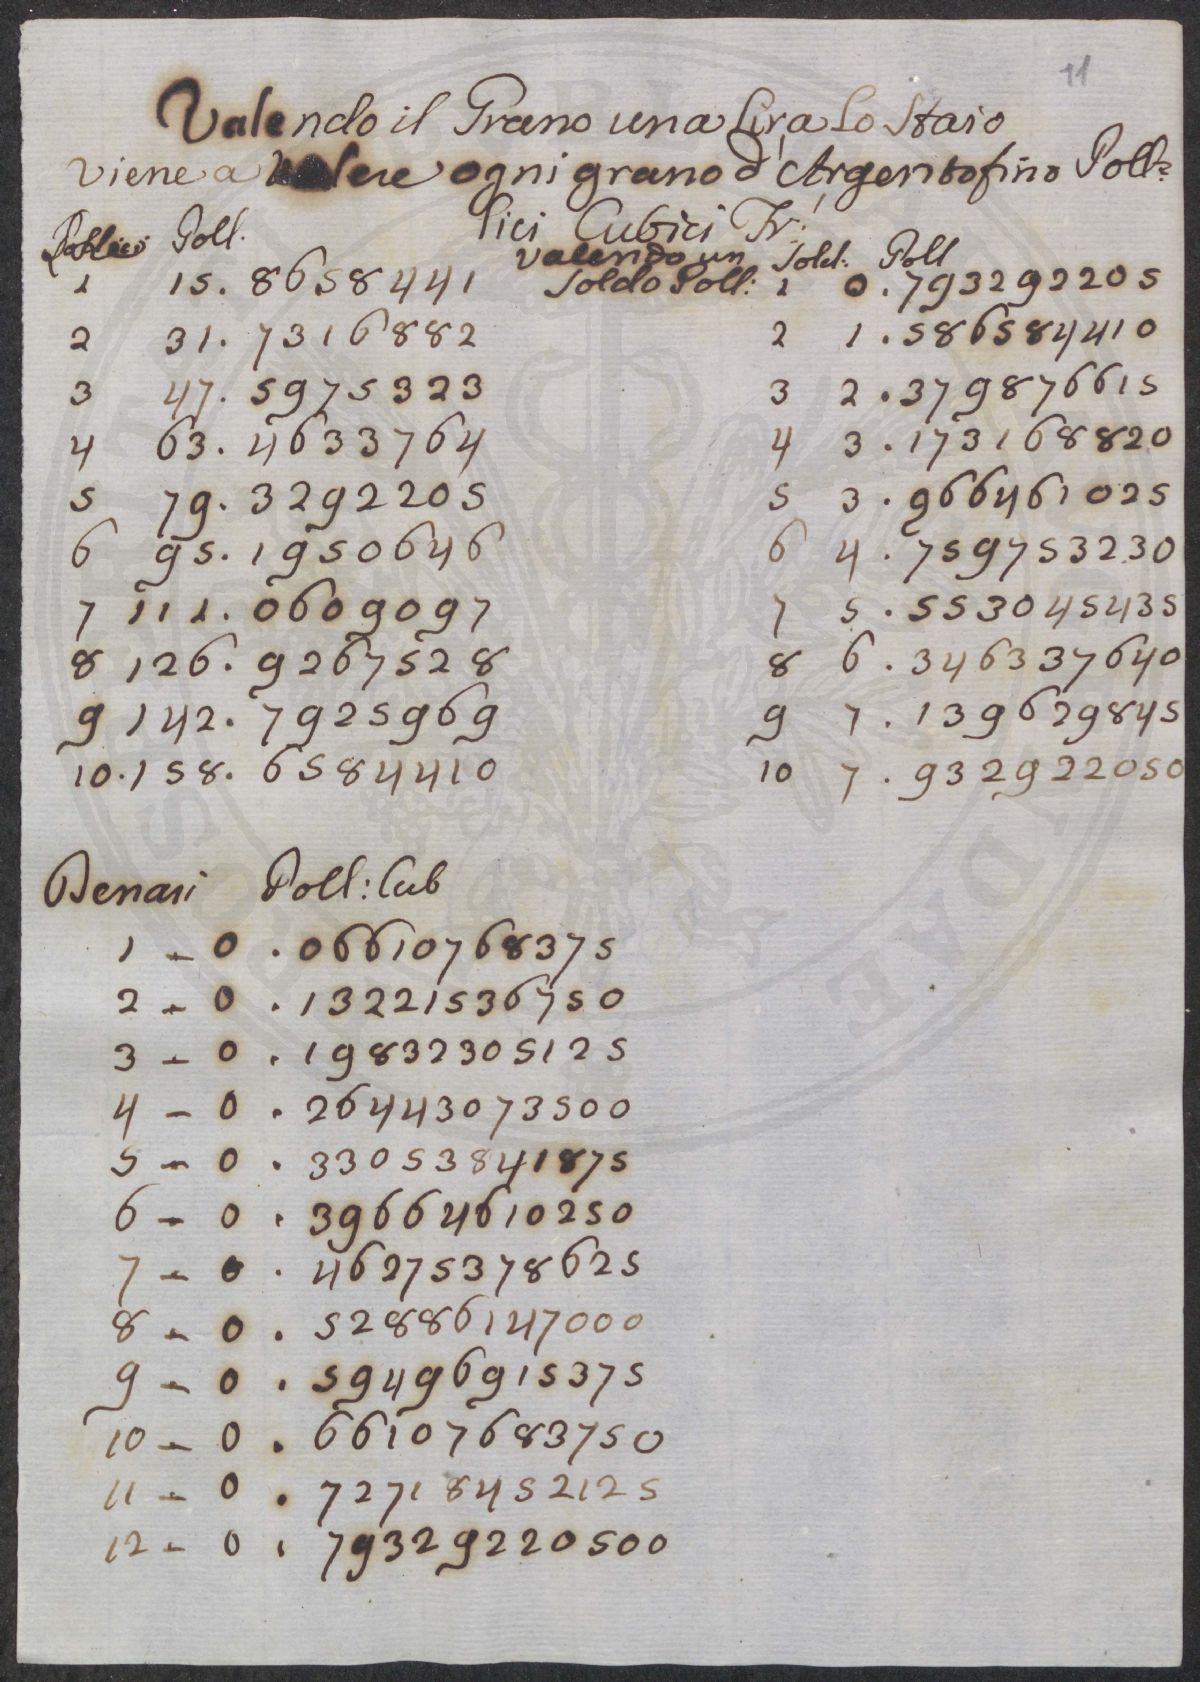 11
Valendo il Grano una Lira Lo Staio
viene a Valere ogni grano d'Argento fino Poll=
lici Cubici Fr:
Poll.
1 15. 8658441
2 31. 7316882
3 47. 5975323
4 63. 4633764
5 79. 3292205
6 95. 1950646
7 111. 0609097
8 126. 9267528
9 142. 7925969
10. 158. 6584410
valendo un Sold: Poll
Soldo Poll: 1 0.793292205
2 1.586584410
3 2.379876615
4 3.173168820
5 3.966461025
6 4.759753230
7 5.553045435
8 6.346337640
9 7.139629845
10 7.932922050
Denari Poll: Cub
1 - 0 . 06610768375
2 - 0 . 13221536750
3 - 0 . 19832305125
4 - 0 . 26443073500
5 - 0 . 33053841875
6 - 0 . 39664610250
7 - 0 . 46275378625
8 - 0 . 52886147000
9 - 0 . 59496915375
10 - 0 . 66107683750
11 - 0 . 72718452125
12 - 0 . 79329220500